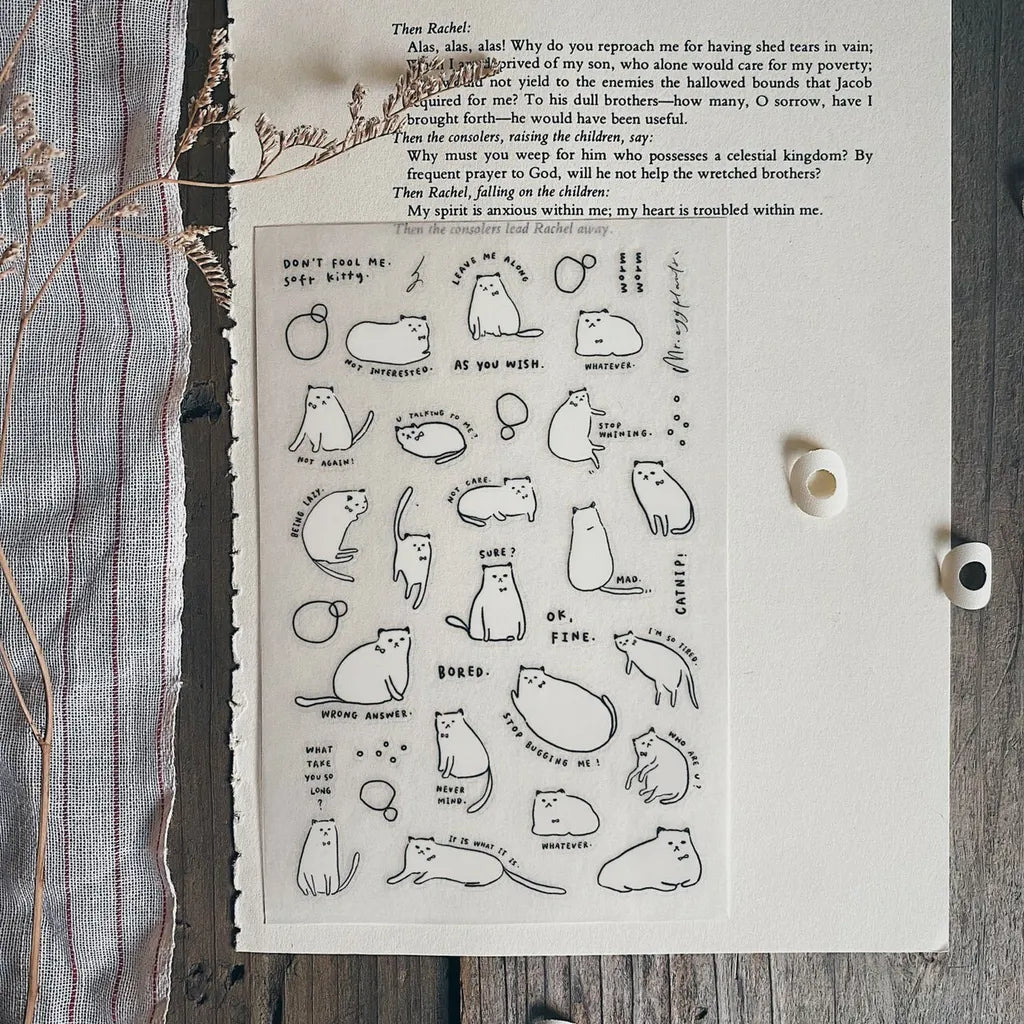 Then Rachel:
Alas, alas, alas! Why do you reproach me for having shed tears in vain;
I am deprived of my son, who alone would care for my poverty;
not yield to the enemies the hallowed bounds that Jacob
acquired for me? To his dull brothers—how many, O sorrow, have I
brought forth—he would have been useful.
Then the consolers, raising the children, say:
Why must you weep for him who possesses a celestial kingdom? By
frequent prayer to God, will he not help the wretched brothers?
Then Rachel, falling on the children:
My spirit is anxious within me; my heart is troubled within me.
Then the consolers lead Rachel away.
DON'T FOOL ME.
soft kitty.
LEAVE ME ALONG
MEOW
MEOW
Mr. eggplant.
NOT INTERESTED.
AS YOU WISH.
WHATEVER.
NOT AGAIN!
U TALKING TO ME?
STOP
WHINING.
BEING LAZY.
NOT CARE.
SURE?
MAD.
CATNIP!
OK,
FINE.
I'M SO TIRED.
BORED.
WRONG ANSWER.
STOP BUGGING ME!
WHAT
TAKE
YOU SO
LONG
?
NEVER
MIND.
WHO ARE U?
WHATEVER.
IT IS WHAT IT IS.